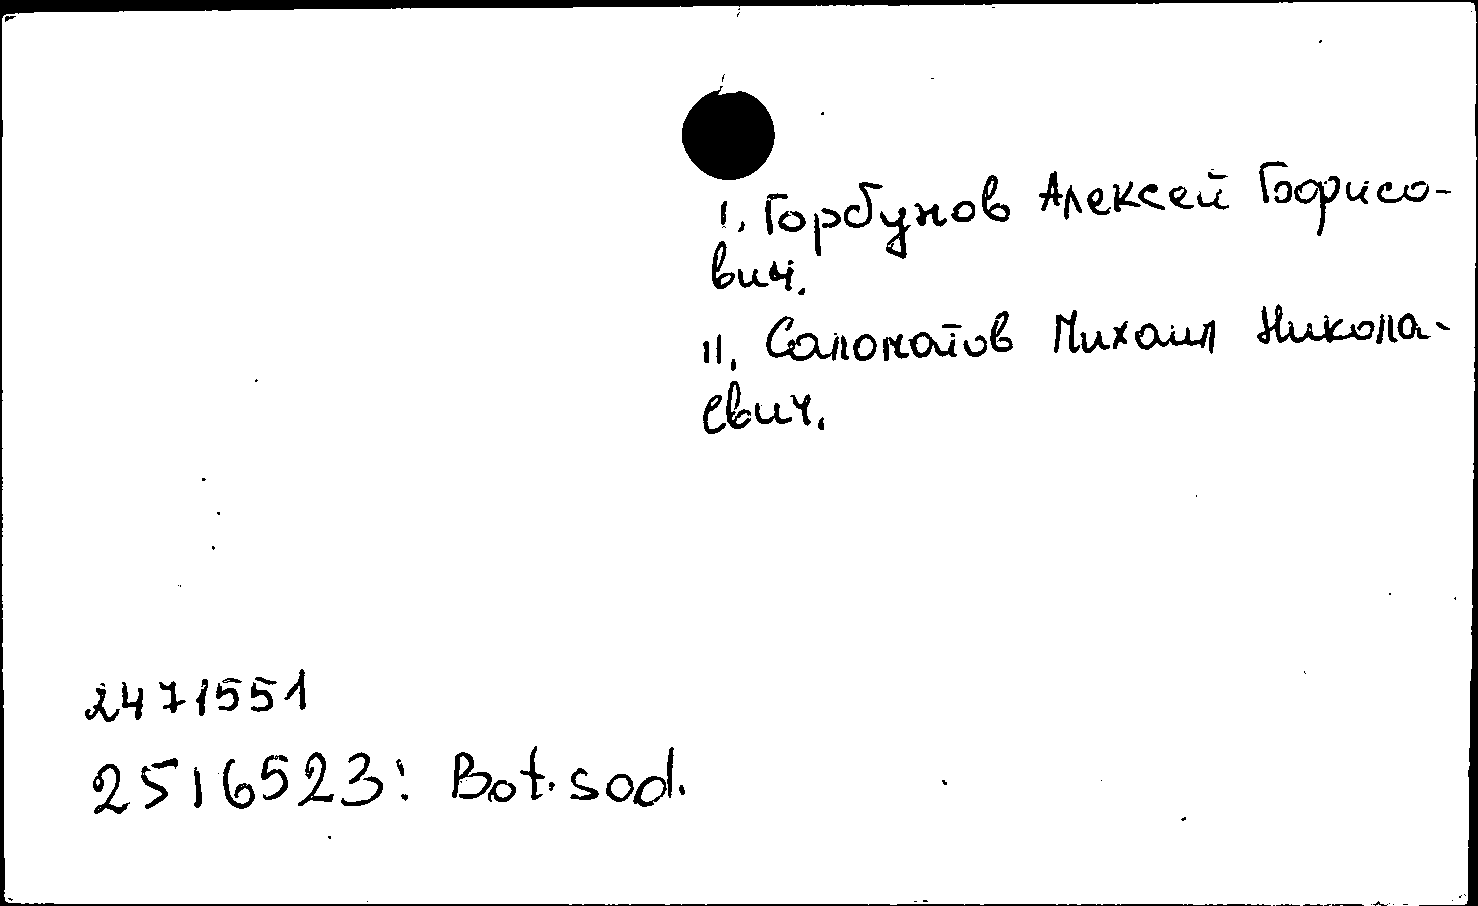 I. Горбунов Алексей Борисо-
вич.
II. Саломатов Михаил Никола-
евич.
2471551
2516523: Bot. sod.